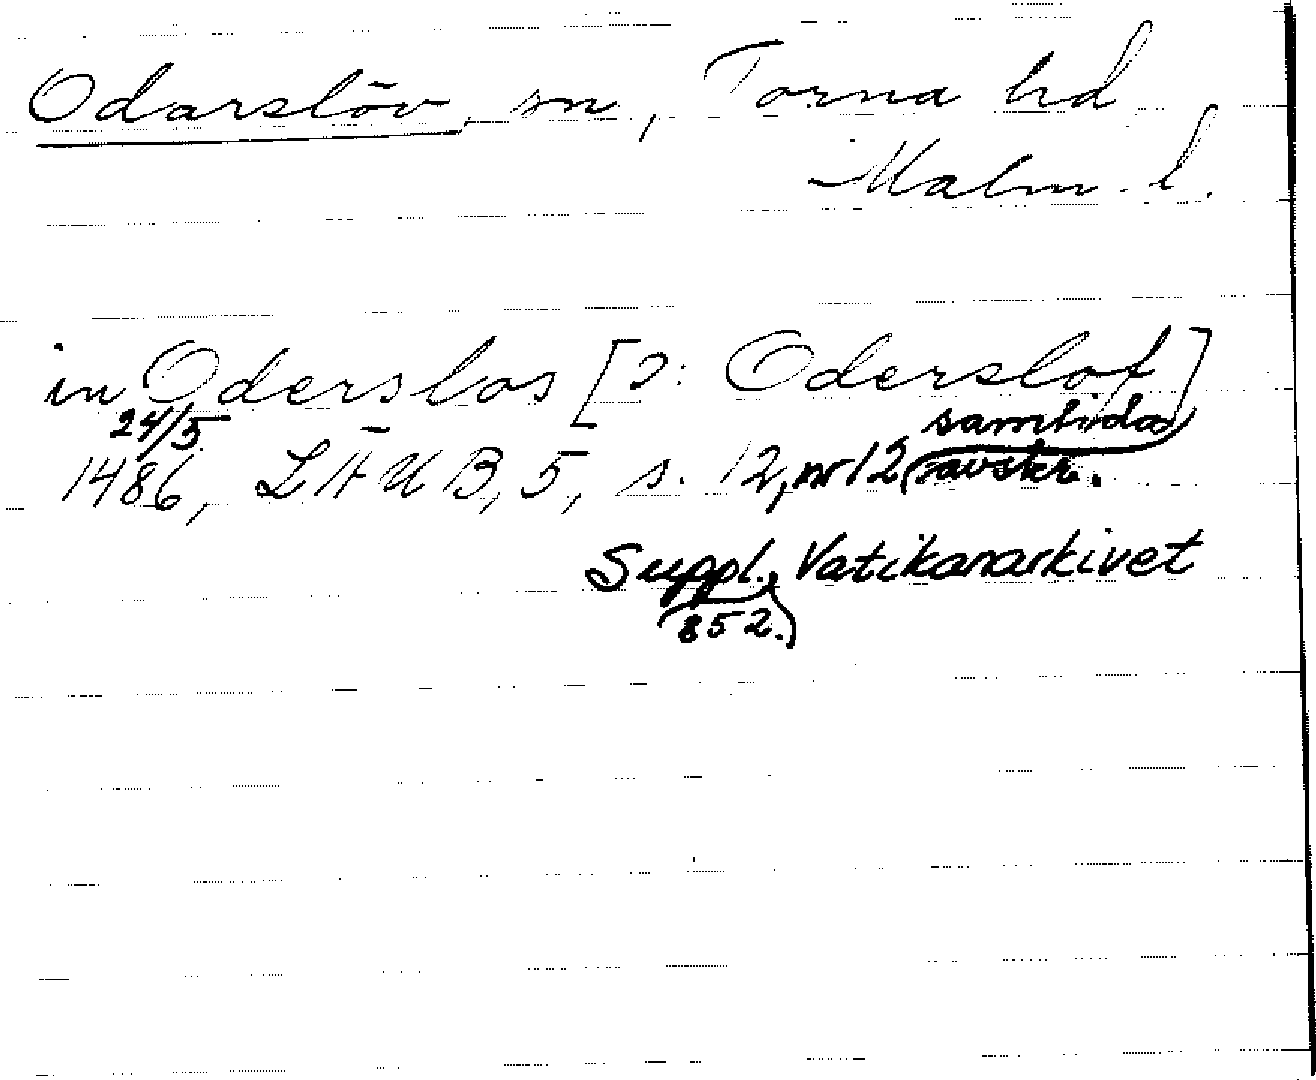 Odarslöv, sn, Torna hd
Malm. l.
in Oderslos [ɔ: Oderslof]
24/5 samtida
1486, LÄUB, 5, s. 12, nr 12 (avskr.
Suppl., Vatikanarkivet
852.)